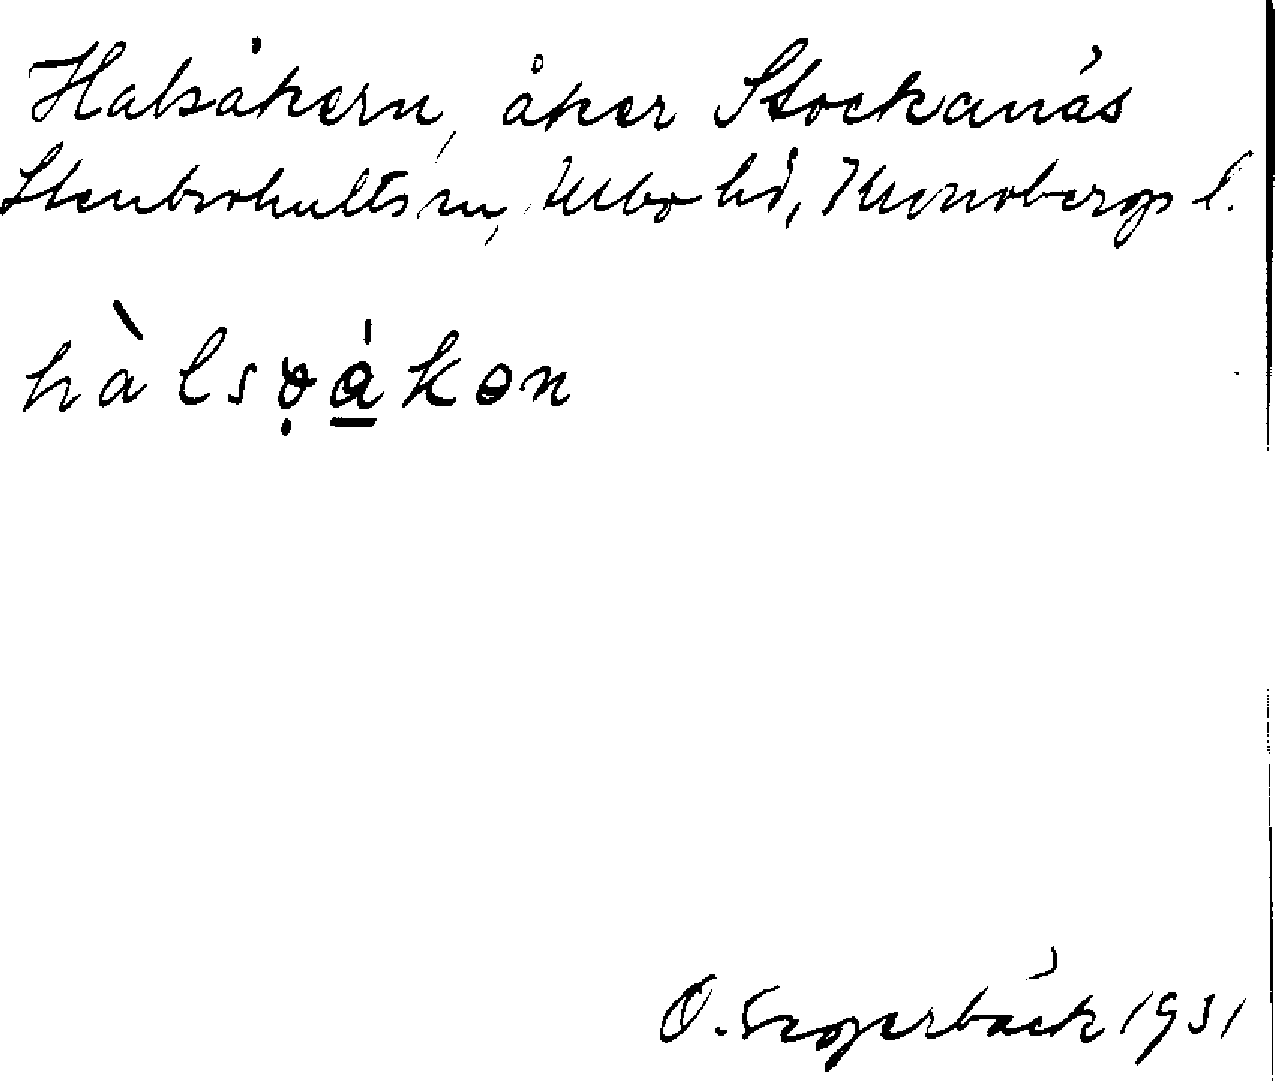 Halsåkern, åker Stockanäs
Stenbrohults sn, Allbo hd, Kronobergs l.
hàlsọákən
O. Segerbäck 1931